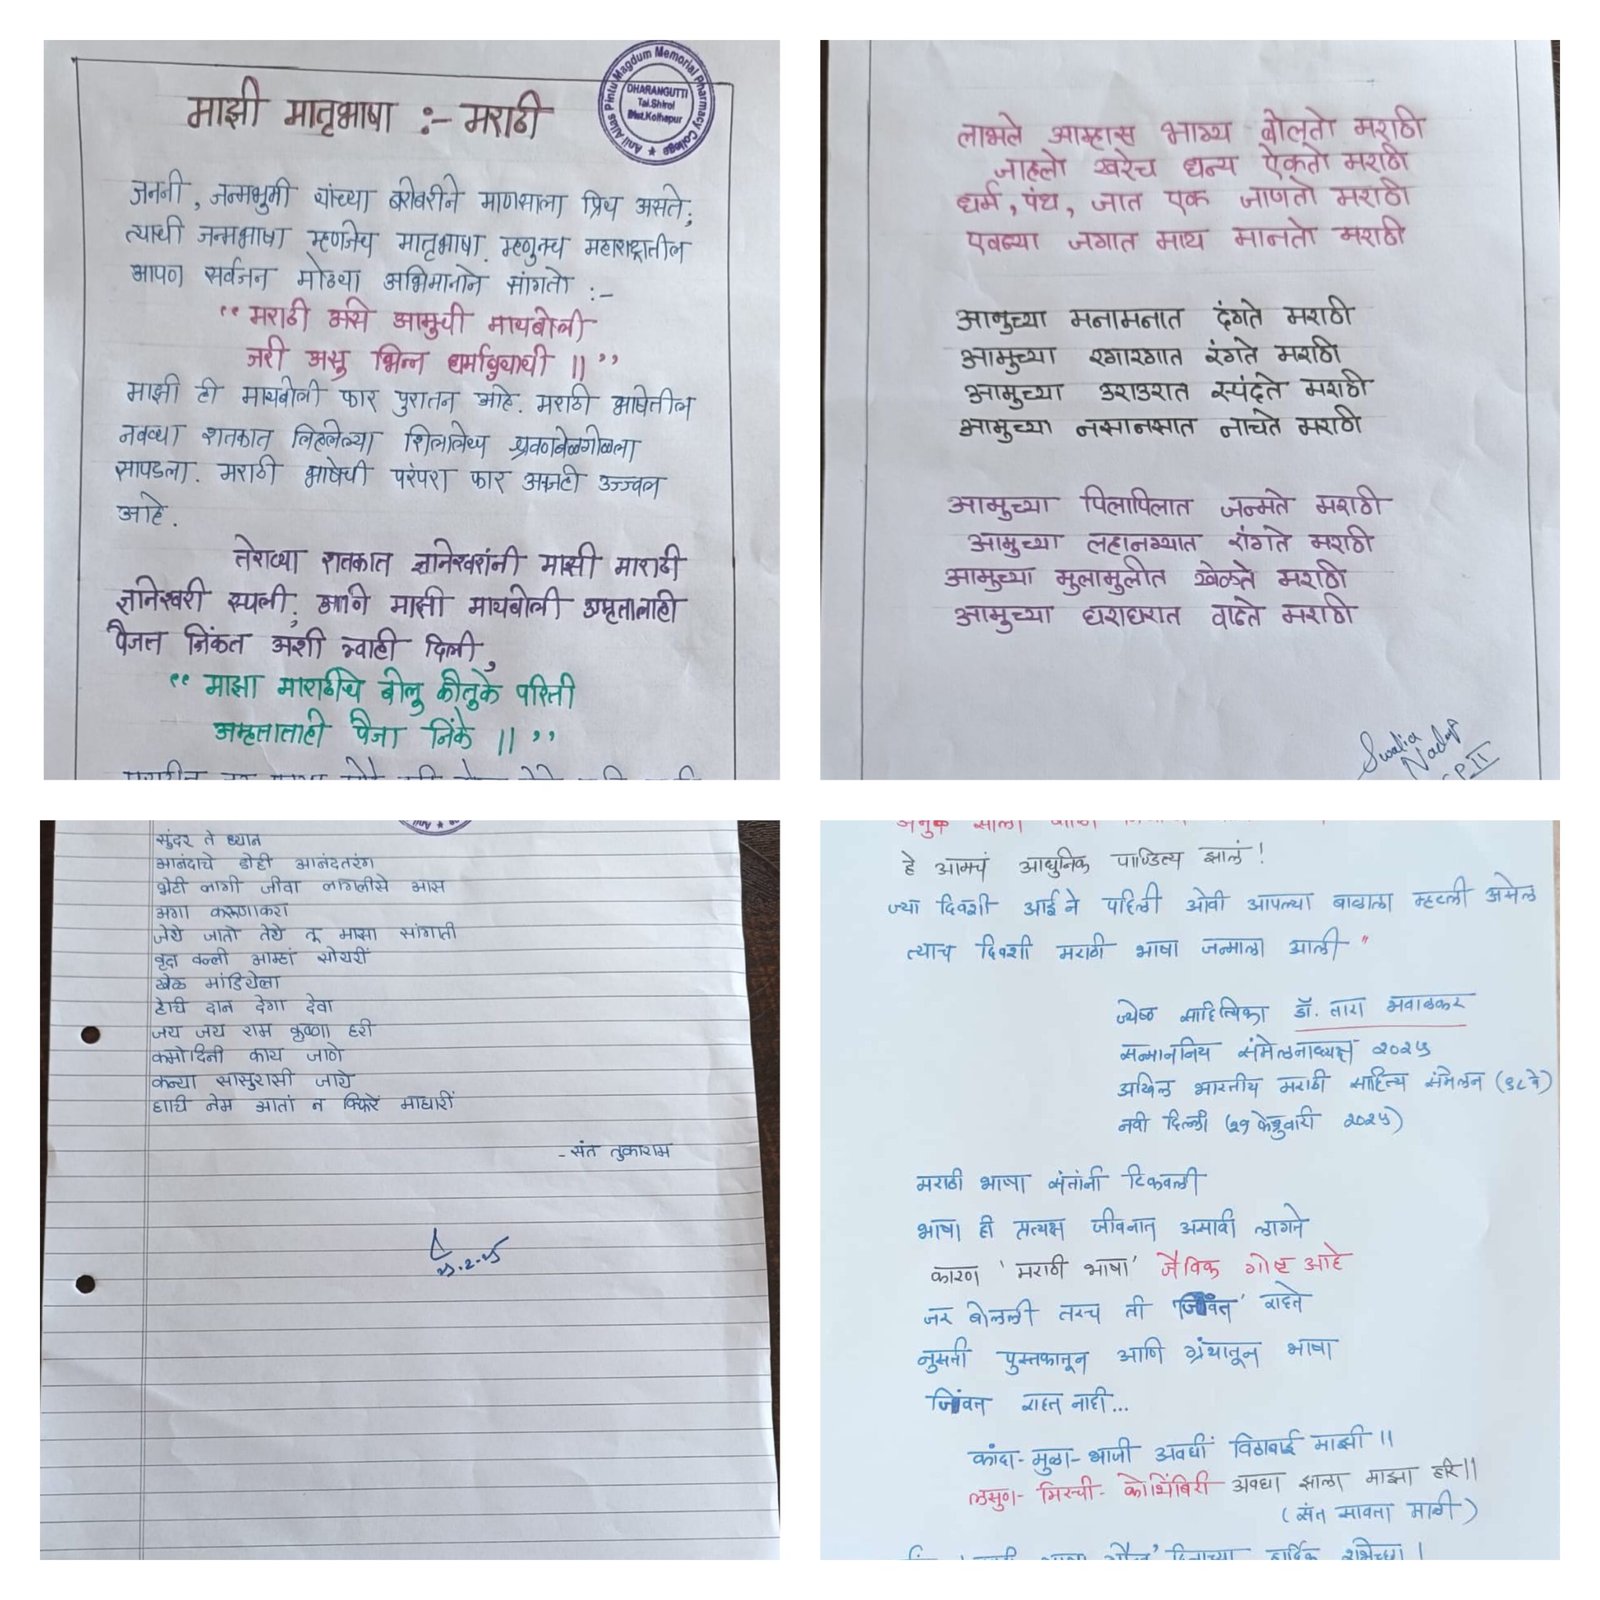 माझी मातृभाषा :- मराठी
Anil Alias Pintu Magdum Memorial Pharmacy College
DHARANGUTTI
Tal.Shirol
Dist.Kolhapur
जननी, जन्मभुमी यांच्या बरोबरीने माणसाला प्रिय असते;
त्याची जन्मभाषा म्हणजेच मातृभाषा. म्हणुनच महाराष्ट्रातील
आपण सर्वजन मोठ्या अभिमानाने सांगतो :-
“ मराठी असे आमुची मायबोली
जरी असु भिन्न धर्मानुयायी ॥ ”
माझी ही मायबोली फार पुरातन आहे. मराठी भाषेतील
नवव्या शतकात लिहलेल्या शिलालेख श्रवणबेळगोळला
सापडला. मराठी भाषेची परंपरा फार उज्ज्वल
आहे.
तेराव्या शतकात ज्ञानेश्वरांनी मासी माराठी
ज्ञानेश्वरी रचली; आणि माझी मायबोली अमृतालाही
पैजत जिंकत अशी ग्वाही दिली,
“ माझा माराठीचि बोलु कौतुके परिती
अमृतातही पैजा जिंके ॥ ”
लाभले आम्हास भाग्य बोलतो मराठी
जाहलो खरेच धन्य ऐकतो मराठी
धर्म, पंथ, जात एक जाणतो मराठी
एवढ्या जगात माय मानतो मराठी
आमुच्या मनामनात दंगते मराठी
आमुच्या रगारगात रंगते मराठी
आमुच्या उराउरात स्पंदते मराठी
आमुच्या नसानसात नाचते मराठी
आमुच्या पिलापिलात जन्मते मराठी
आमुच्या लहानग्यात रांगते मराठी
आमुच्या मुलामुलीत खेळते मराठी
आमुच्या घराघरात वाढते मराठी
सुंदर ते ध्यान
आनंदाचे डोही आनंदतरंग
भेटी लागी जीवा लागलीसे आस
अगा करुणाकरा
जेथे जातो तेथे तू मासा सांगाती
वृक्ष वल्ली आम्हां सोयरीं
खेळ मांडियेला
हेचि दान देगा देवा
जय जय राम कृष्णा हरी
कमोदिनी काय जाणे
कन्या सासुरासी जाये
हाचि नेम आतां न फिरें माघारीं
- संत तुकाराम
२५.२.२५
हे आमचं आधुनिक पाण्डित्य झालं !
ज्या दिवशी आईने पहिली ओवी आपल्या बाळाला म्हटली असेल
त्याच दिवशी मराठी भाषा जन्माला आली "
ज्येष्ठ साहित्यिका डॉ. तारा भवाळकर
सन्माननिय संमेलनाध्यक्ष २०२५
अखिल भारतीय मराठी साहित्य संमेलन (९८ वे)
नवी दिल्ली (२१ फेब्रुवारी २०२५)
मराठी भाषा संतांनी टिकवली
भाषा ही जीवनात असावी लागते
कारण 'मराठी भाषा' जैविक गोष्ट आहे
जर बोलली तरच ती 'जिवंत' राहते
नुसती पुस्तकातून आणि ग्रंथातून भाषा
जिवंत राहत नाही...
कांदा - मुळा - भाजी अवघीं विठाबाई माझी ॥
लसुण - मिरची - कोथिंबिरी अवघा झाला माझा हरि ॥
(संत सावता माळी)